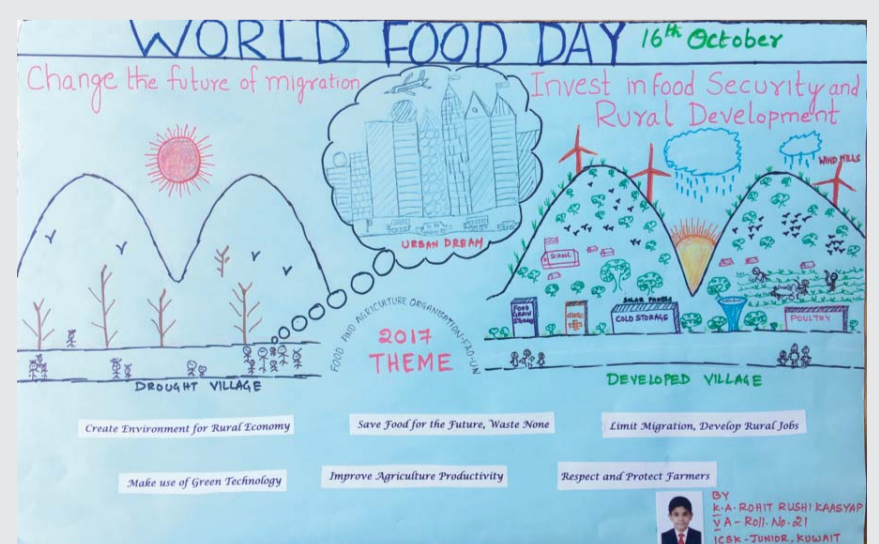 WORLD FOOD DAY 16th October
Change the future of migration
Invest in food Security and
Rural Development
WIND MILLS
URBAN DREAM
SCHOOL
FOOD AND AGRICULTURE ORGANISATION-FAO-UN
2017
THEME
FOOD
GRAIN
STORAGE
CLINIC
SOLAR PANELS
COLD STORAGE
POULTRY
DROUGHT VILLAGE
DEVELOPED VILLAGE
Create Environment for Rural Economy
Save Food for the Future, Waste None
Limit Migration, Develop Rural Jobs
Make use of Green Technology
Improve Agriculture Productivity
Respect and Protect Farmers
BY
K.A.ROHIT RUSHI KAASYAP
V A - Roll. No. 21
ICSK - JUNIOR, KUWAIT